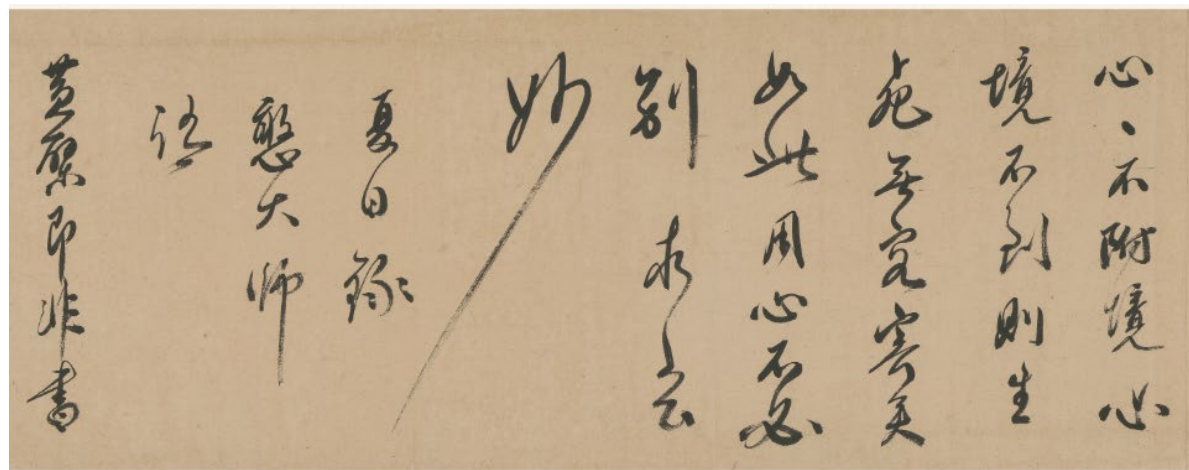 心〻不附境心
境不到則生
死無容寄矣
如此用心不必
別求玄
妙
夏日錄
憨大師
語
黃檗即非書